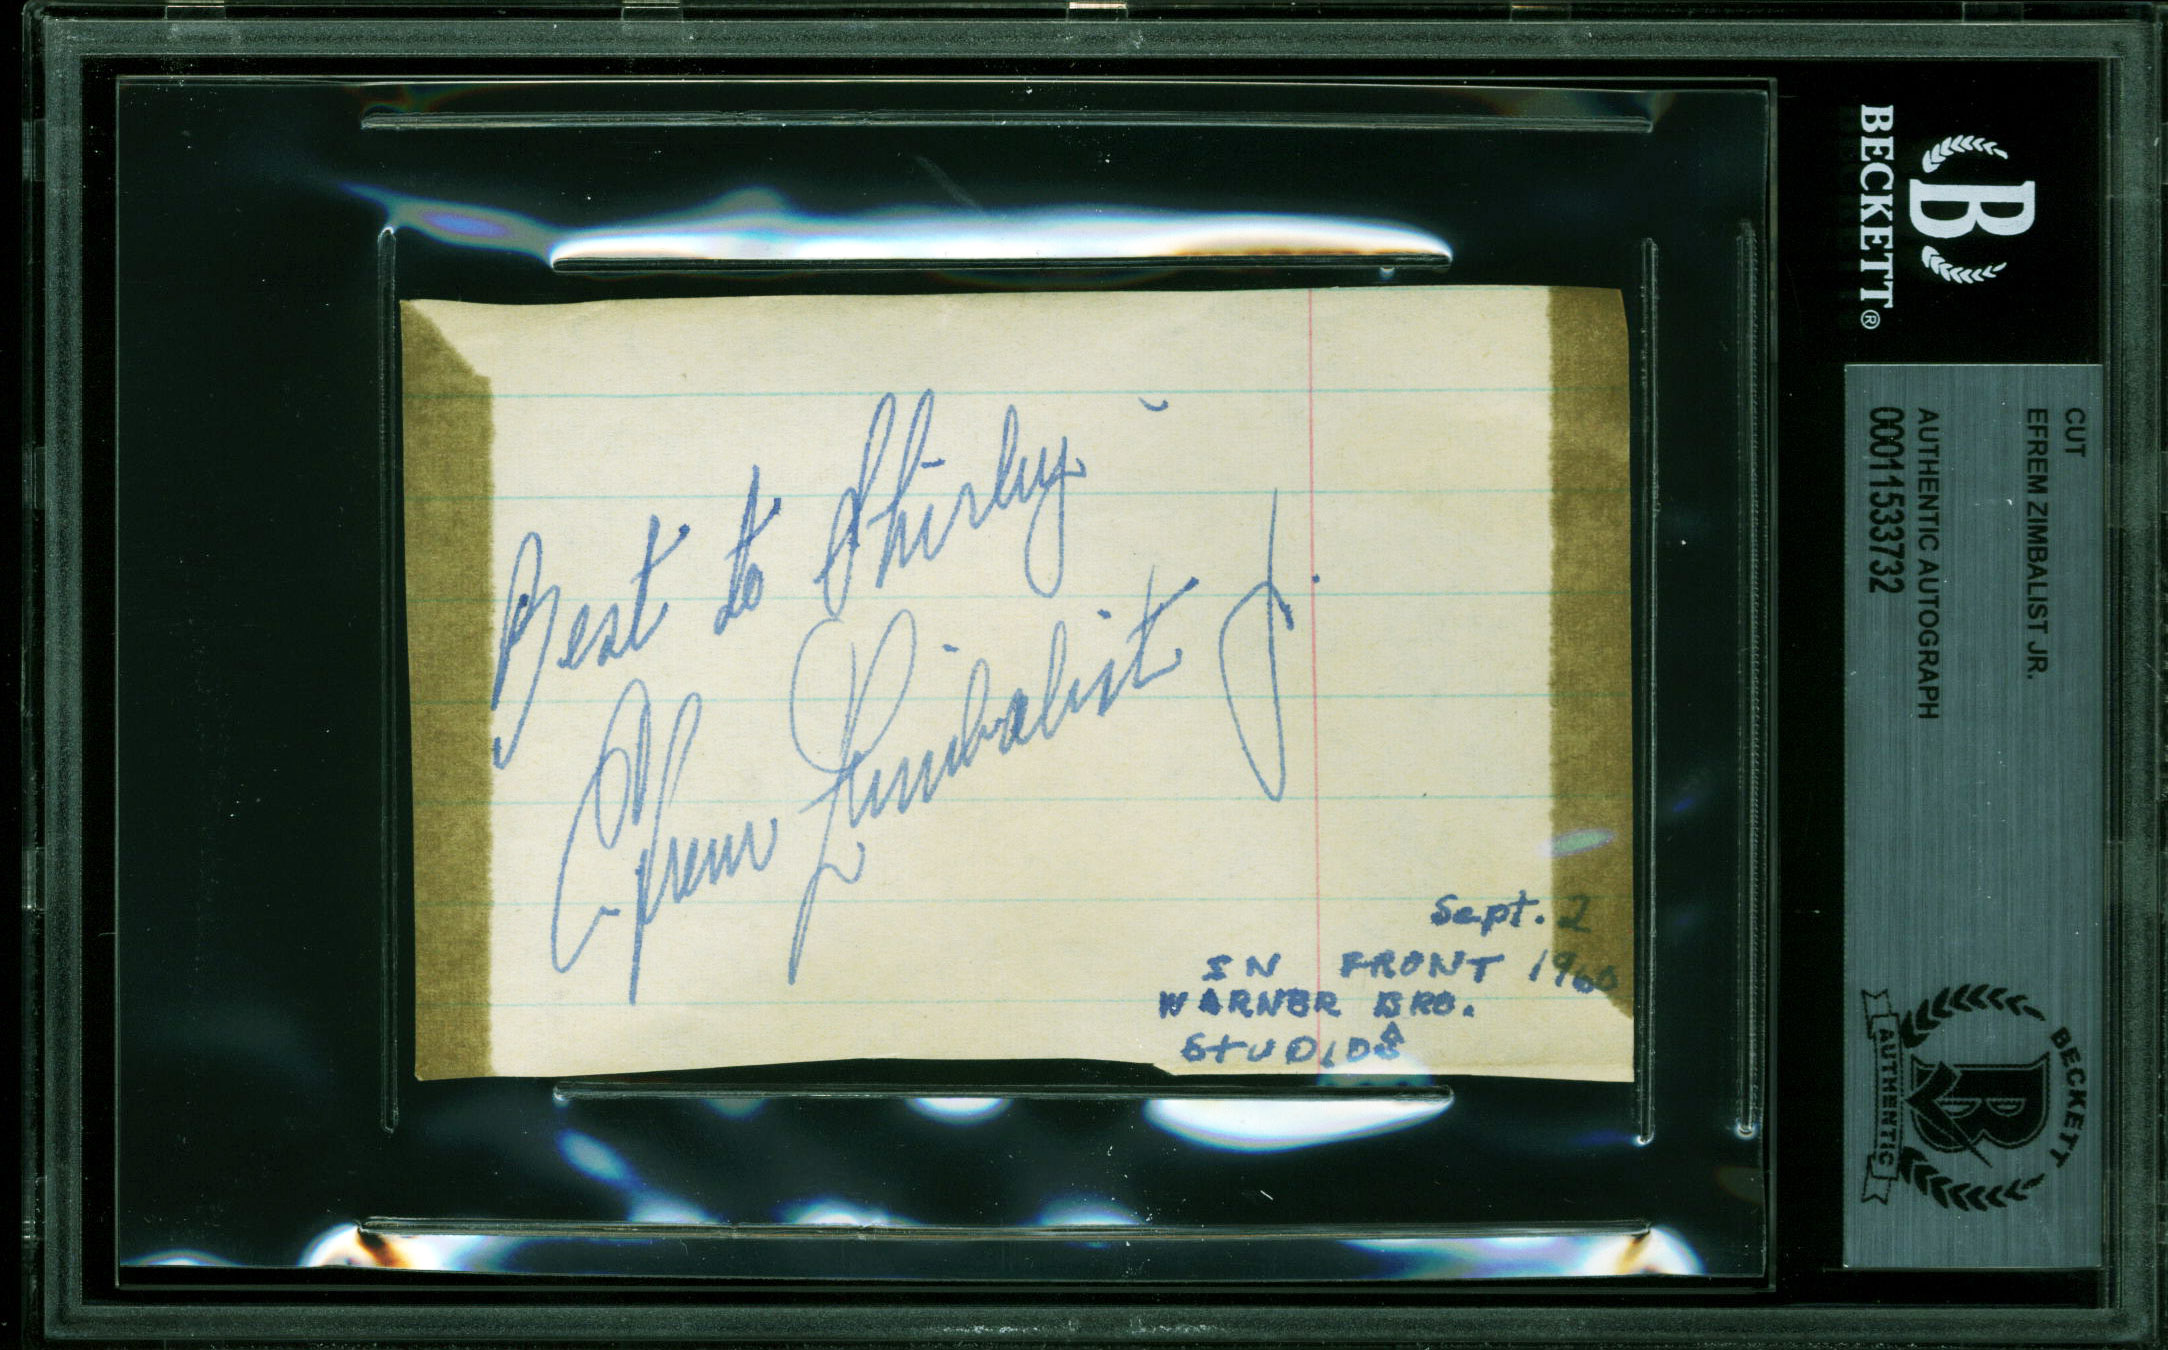 Best to Shirley
Efrem Zimbalist Jr.
Sept. 2
IN FRONT 1960
WARNER BRO.
STUDIOS
B
BECKETT®
CUT
EFREM ZIMBALIST JR.
AUTHENTIC AUTOGRAPH
00011533732
BECKETT
B
AUTHENTIC